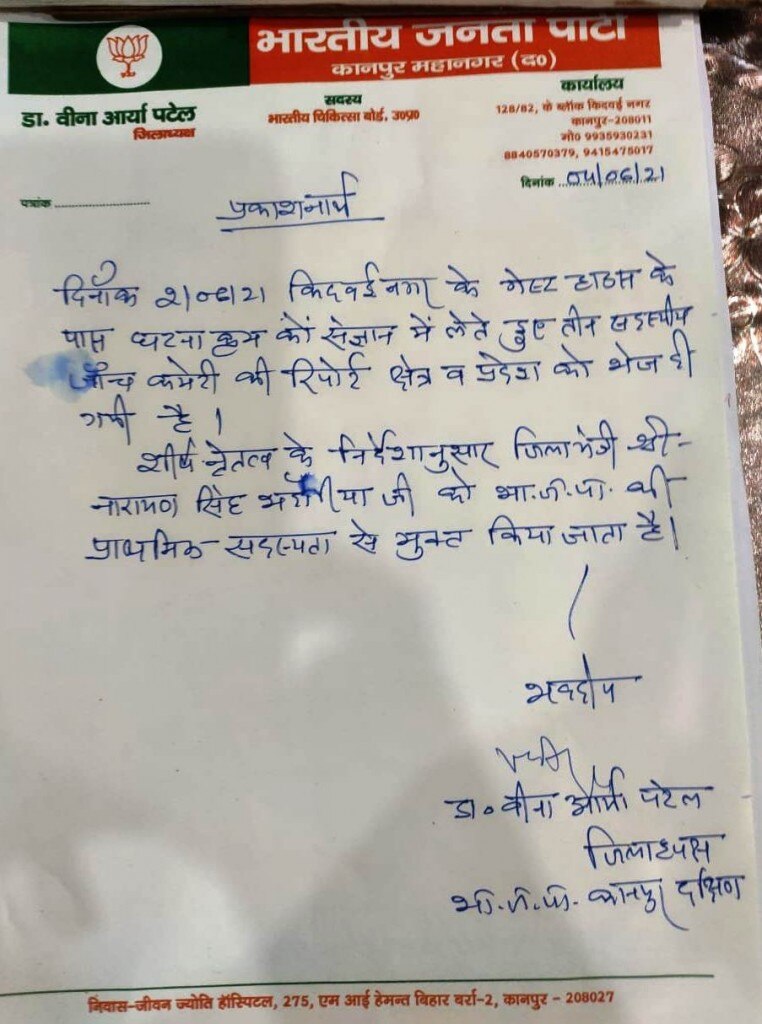 भारतीय जनता पार्टी
कानपुर महानगर (द०)
डा. वीना आर्या पटेल
जिलाध्यक्ष
सदस्य
भारतीय चिकित्सा बोर्ड, उ०प्र०
कार्यालय
128/82, के ब्लॉक किदवई नगर
कानपुर-208011
मो० 9935930231
8840570379, 9415475017
पत्रांक
दिनांक 04/06/21
प्रकाशनार्थ
दिनाँक 2/06/21 किदवई नगर के गेस्ट हाउस के
पास घटना क्रम को संज्ञान में लेते हुए तीन सदस्यीय
जाँच कमेटी की रिपोर्ट क्षेत्र व प्रदेश को भेज दी
गयी है।
शीर्ष नेतृत्व के निर्देशानुसार जिला मंत्री श्री-
नारायण सिंह भदौरिया जी को भा.ज.पा. की
प्राथमिक सदस्यता से मुक्त किया जाता है।
भवदीय
डा० वीना आर्या पटेल
जिलाध्यक्ष
भा.ज.पा. कानपुर दक्षिण
निवास-जीवन ज्योति हॉस्पिटल, 275, एम आई हेमन्त बिहार बर्रा-2, कानपुर - 208027